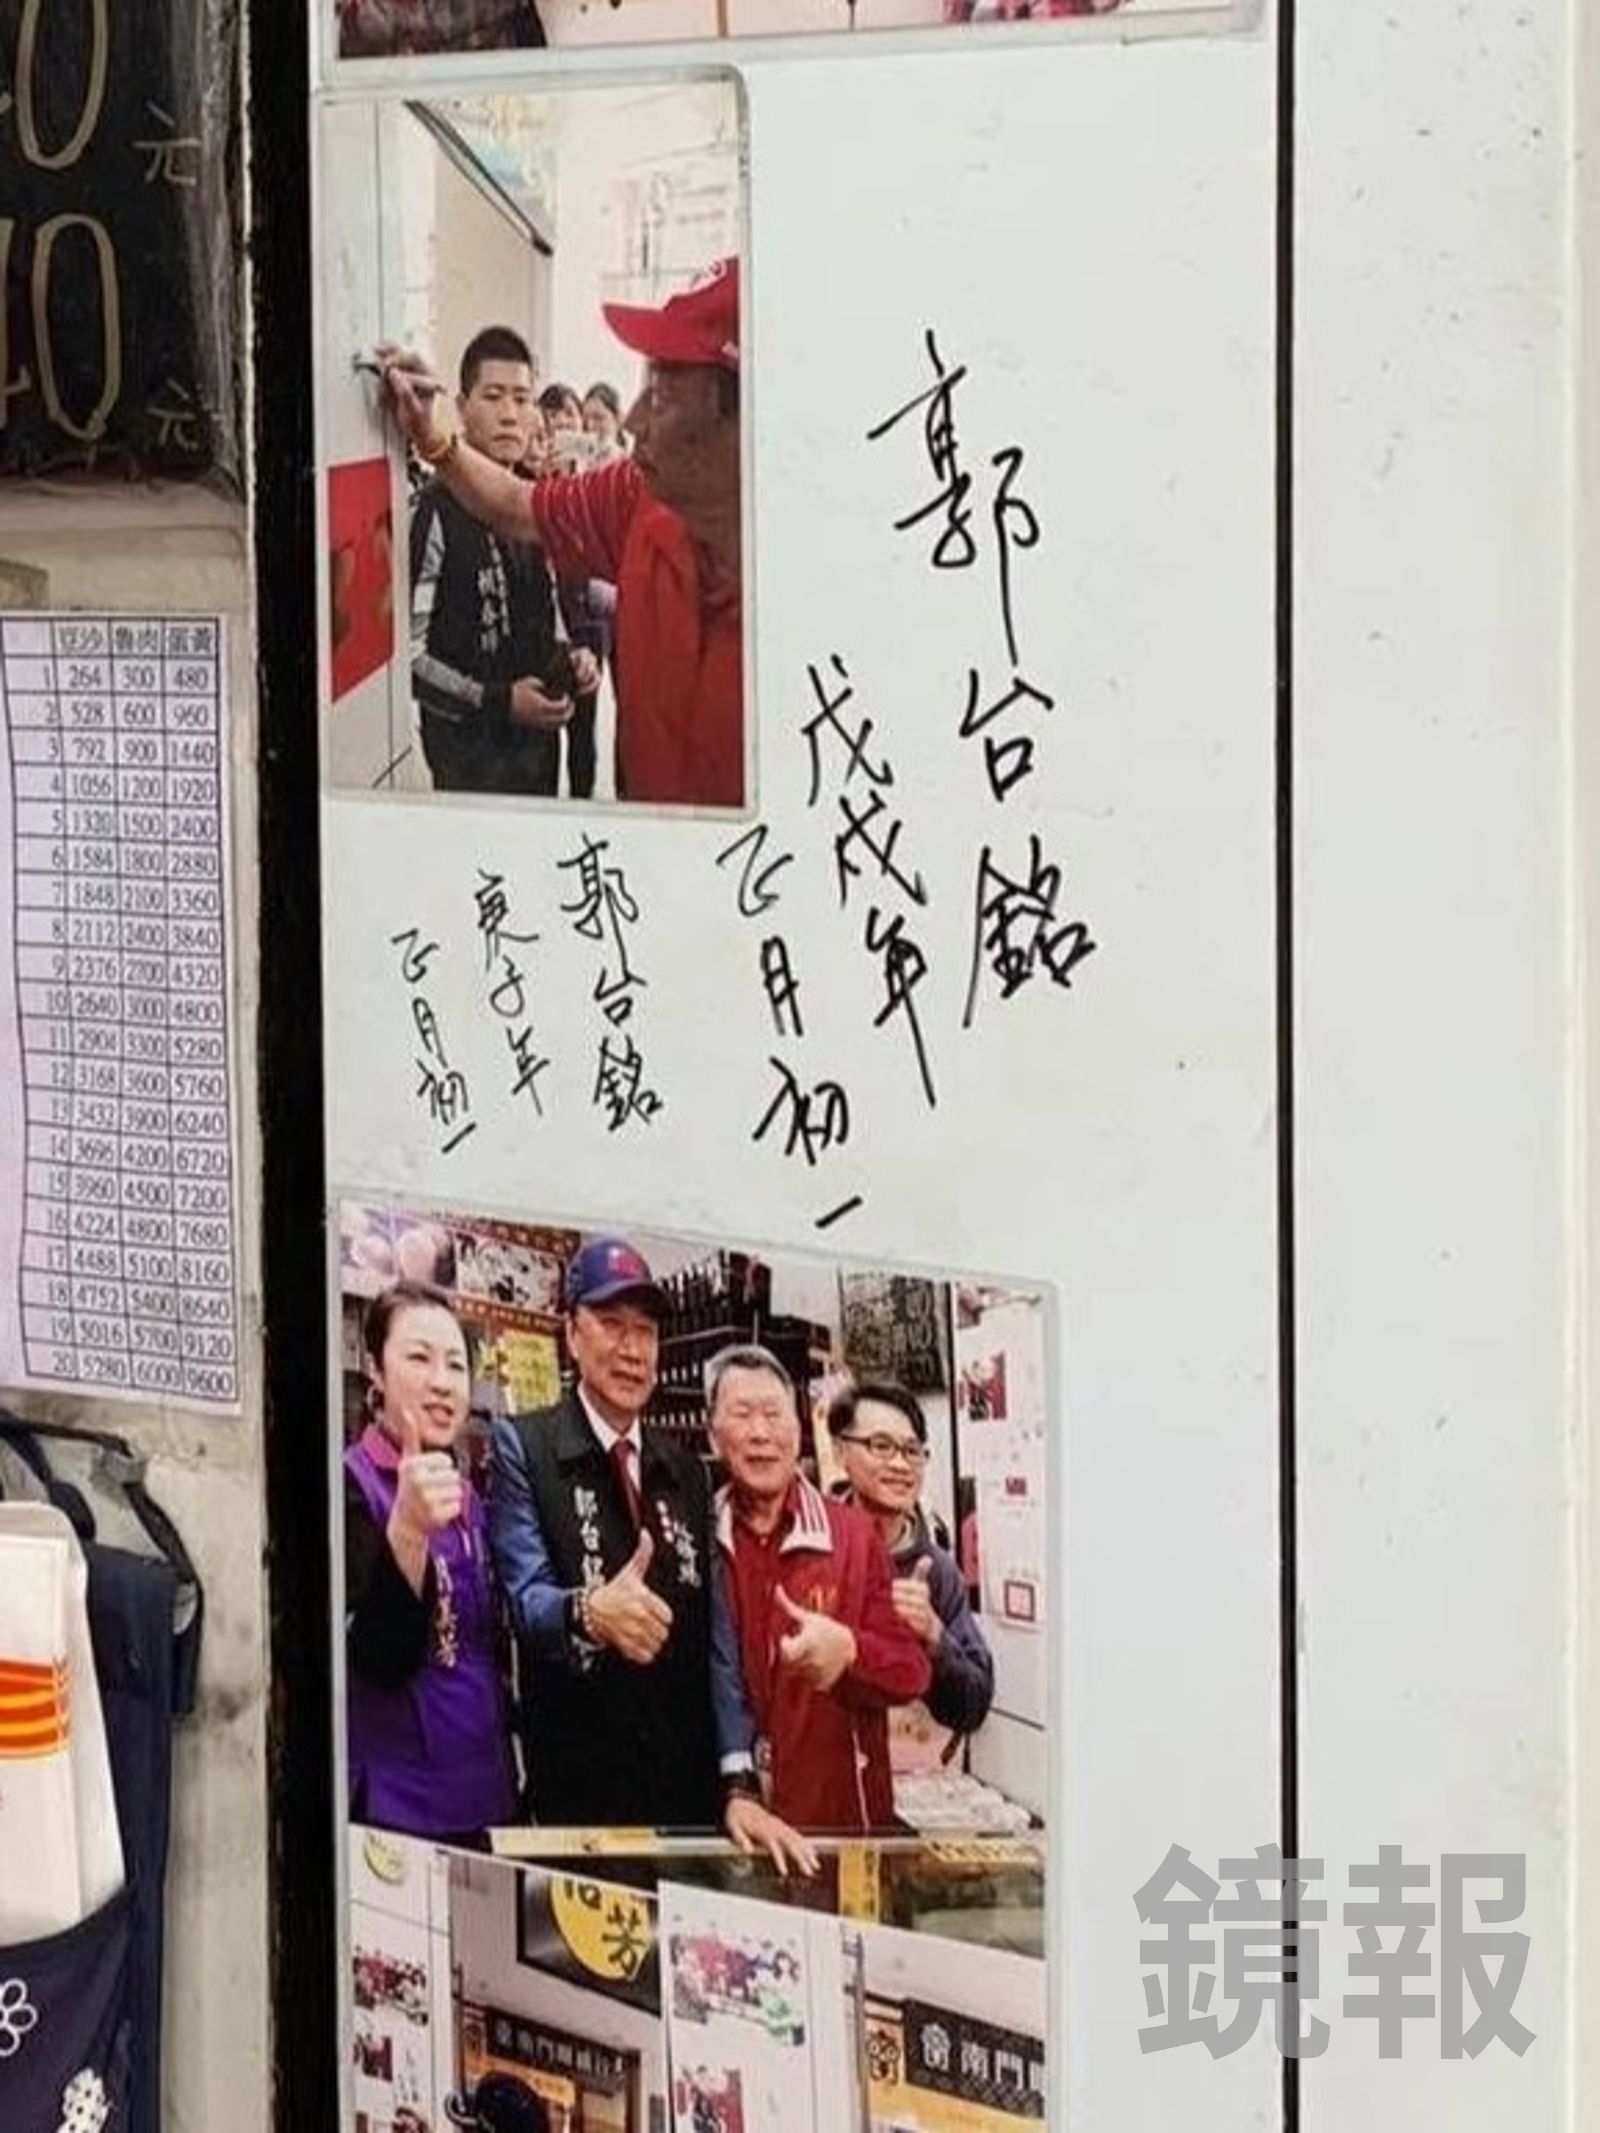 0元
40元
豆沙 魯肉 蛋黃
1 264 300 480
2 528 600 960
3 792 900 1440
4 1056 1200 1920
5 1320 1500 2400
6 1584 1800 2880
7 1848 2100 3360
8 2112 2400 3840
9 2376 2700 4320
10 2640 3000 4800
11 2904 3300 5280
12 3168 3600 5760
13 3432 3900 6240
14 3696 4200 6720
15 3960 4500 7200
16 4224 4800 7680
17 4488 5100 8160
18 4752 5400 8640
19 5016 5700 9120
20 5280 6000 9600
郭台銘
戊戌年
正月初一
郭台銘
庚子年
正月初一
郭台銘
芳
南門
南門
鏡報